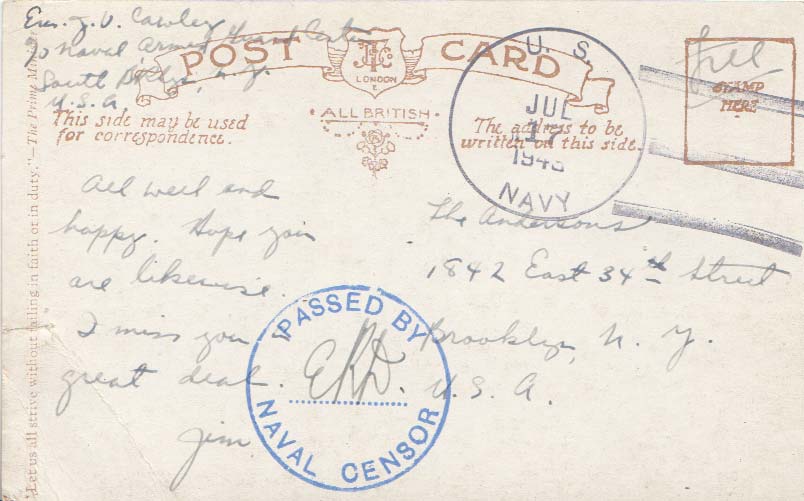 Ens. J. V. Cawley
c/o Naval Armed Guard Center
South Bklyn, N. Y.
U.S.A.
POST CARD
LONDON
E
ALL BRITISH
This side may be used
for correspondence.
The address to be
written on this side.
U. S.
JUL
17
1943
NAVY
free
STAMP
HERE
All well and
happy. Hope you
are likewise.
I miss you
great deal.
Jim
The Andersons
1842 East 34th Street
Brooklyn, N. Y.
U. S. A.
PASSED BY
NAVAL CENSOR
"Let us all strive without failing in faith or in duty."—The Prime